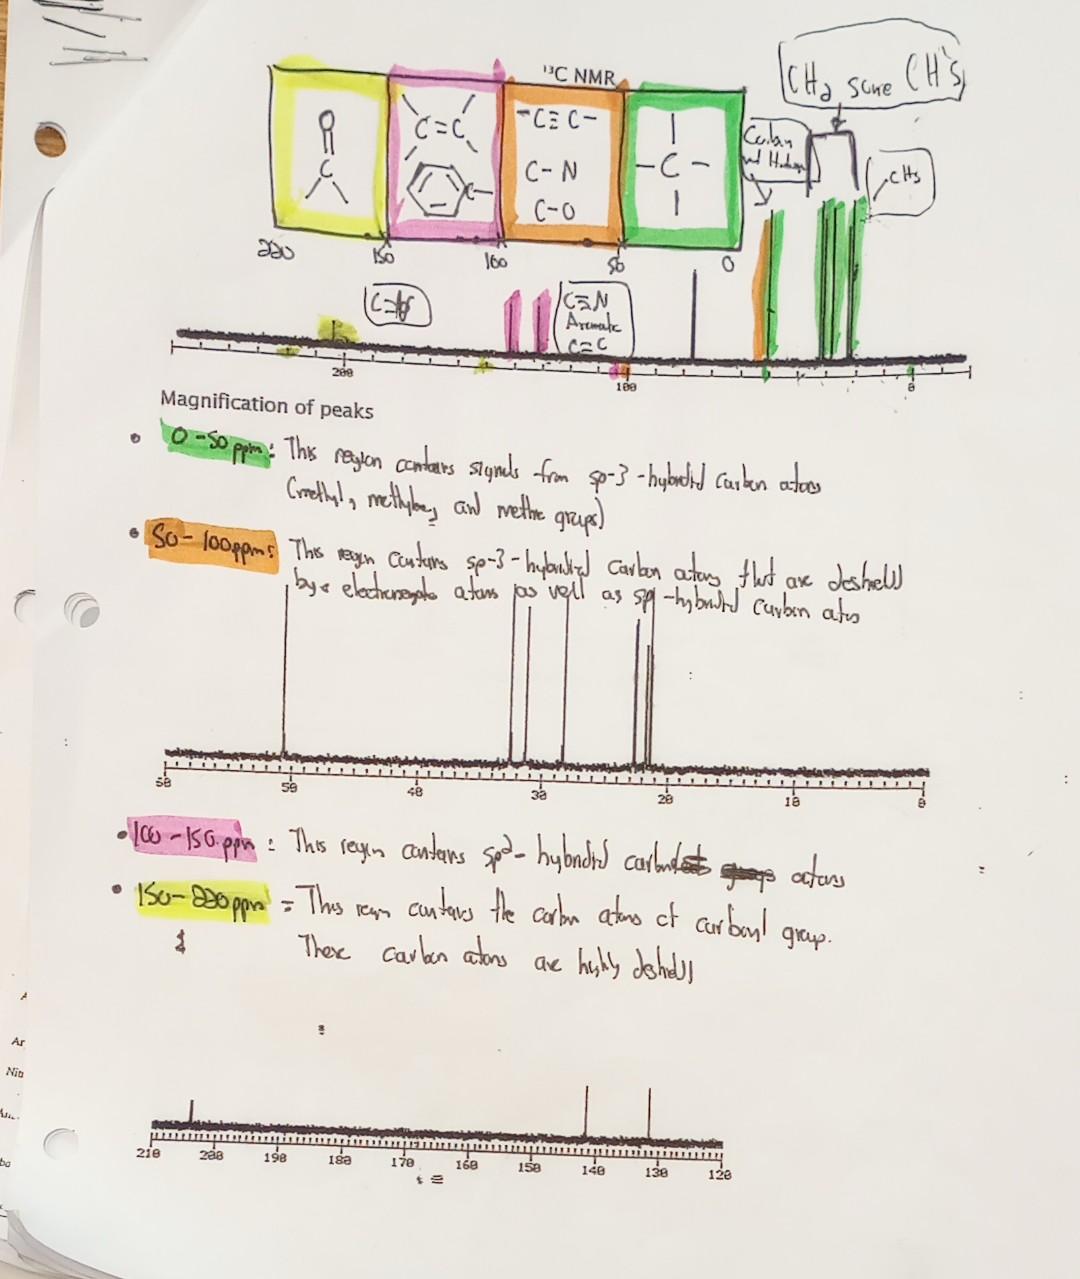 CH2 some CH's
¹³C NMR
O
C
C=C
C
-C≡C-
C-N
C-O
-C-
Carbon
CH3
220
150
100
50
0
C≡N
Aromatic
C=C
200
100
0
Magnification of peaks
0-50 ppm: This region contains signals from sp-3-hybridized carbon atoms
(methyl, methylene, and methine groups)
50-100ppm: This region contains sp-3-hybridized carbon atoms that are deshield
by electronegative atoms as well as sp-hybridized carbon atoms
60 50 40 30 20 10 0
100-150 ppm: This region contains sp2-hybridized carbon atoms
150-220 ppm = This region contains the carbon atoms of carbonyl group.
These carbon atoms are highly deshield
210 200 190 180 170 160 150 140 130 120
Ar